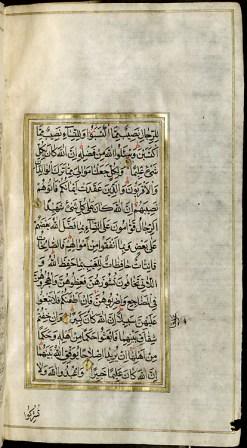 للرجال نصيب مما اكتسبوا وللنساء نصيب مما
اكتسبن وسئلوا الله من فضله إن الله كان بكل
شيء عليما ولكل جعلنا موالي مما ترك الوالدان
والأقربون والذين عقدت أيمانكم فآتوهم
نصيبهم إن الله كان على كل شيء شهيدا
الرجال قوامون على النساء بما فضل الله بعضهم
على بعض وبما أنفقوا من أموالهم فالصالحات
قانتات حافظات للغيب بما حفظ الله و
اللاتي تخافون نشوزهن فعظوهن واهجروهن
في المضاجع واضربوهن فإن أطعنكم فلا تبغوا
عليهن سبيلا إن الله كان عليا كبيرا وإن خفتم
شقاق بينهما فابعثوا حكما من أهله وحكما
من أهلها إن يريدا إصلاحا يوفق الله بينهما
إن الله كان عليما خبيرا واعبدوا الله ولا
تشركوا